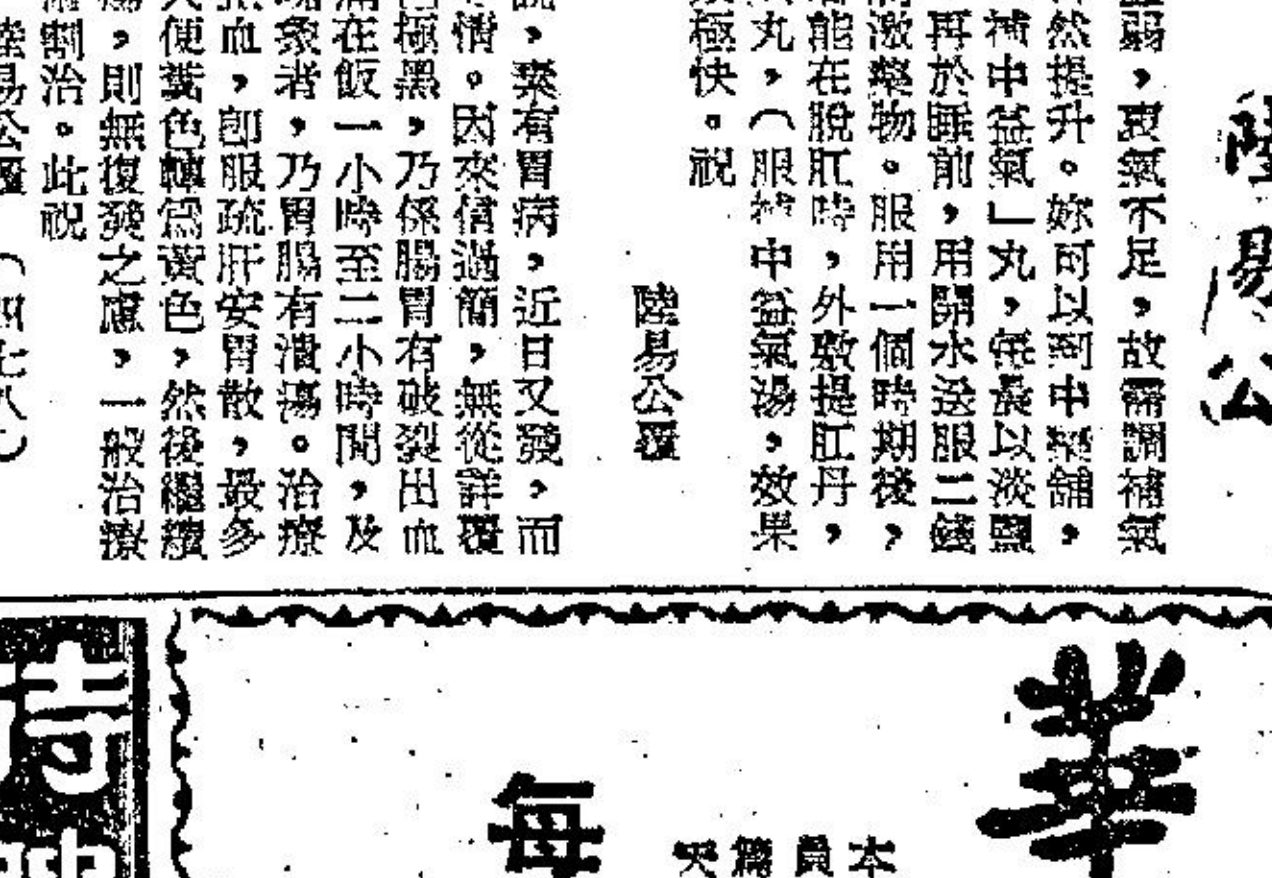 陸易公
弱，衷氣不足，故需調補氣
然提升。妳可以到中藥舖，
補中益氣」丸，每晨以淡鹽
再於睡前，用開水送服二錢
激藥物。服用一個時期後，
能在脫肛時，外敷提肛丹，
丸，（服補中益氣湯，效果
極快。祝
陸易公覆
，素有胃病，近日又發，而
情。因來信過簡，無從詳覆
極黑，乃係腸胃有破裂出血
在飯一小時至二小時間，及
象者，乃胃腸有潰瘍。治療
血，卽服疏肝安胃散，最多
便糞色轉爲黃色，然後繼續
，則無復發之慮，一般治療
割治。此祝
陸易公覆 （四七八）
華
本員爲天
每
特